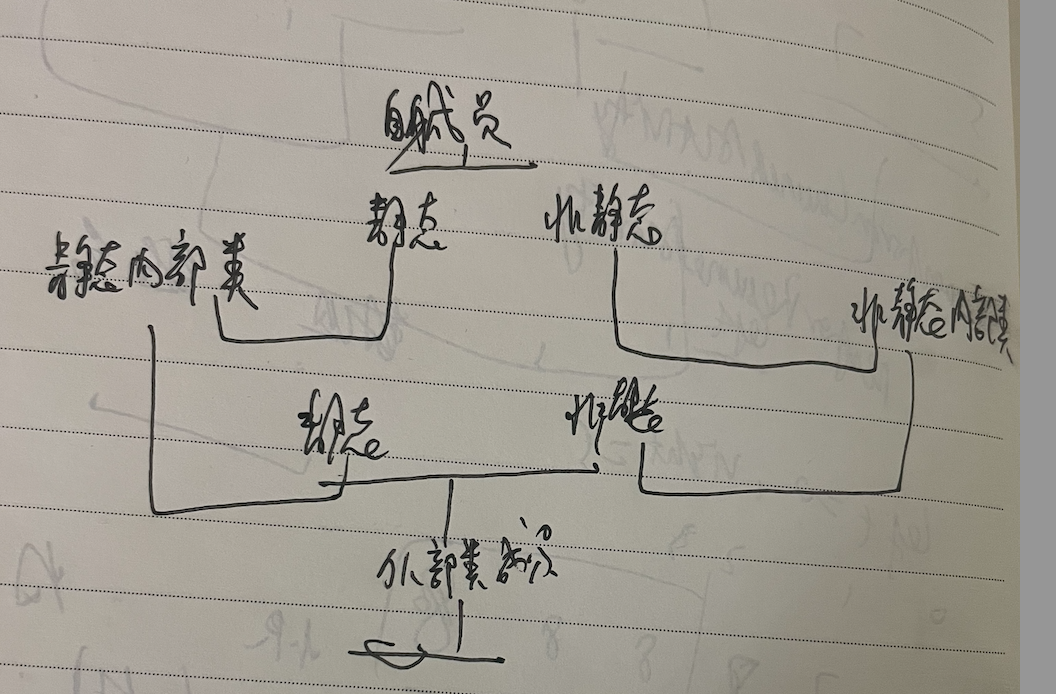 自身成员
静态 非静态
静态内部类
非静态内部类
静态 非静态
外部类成员